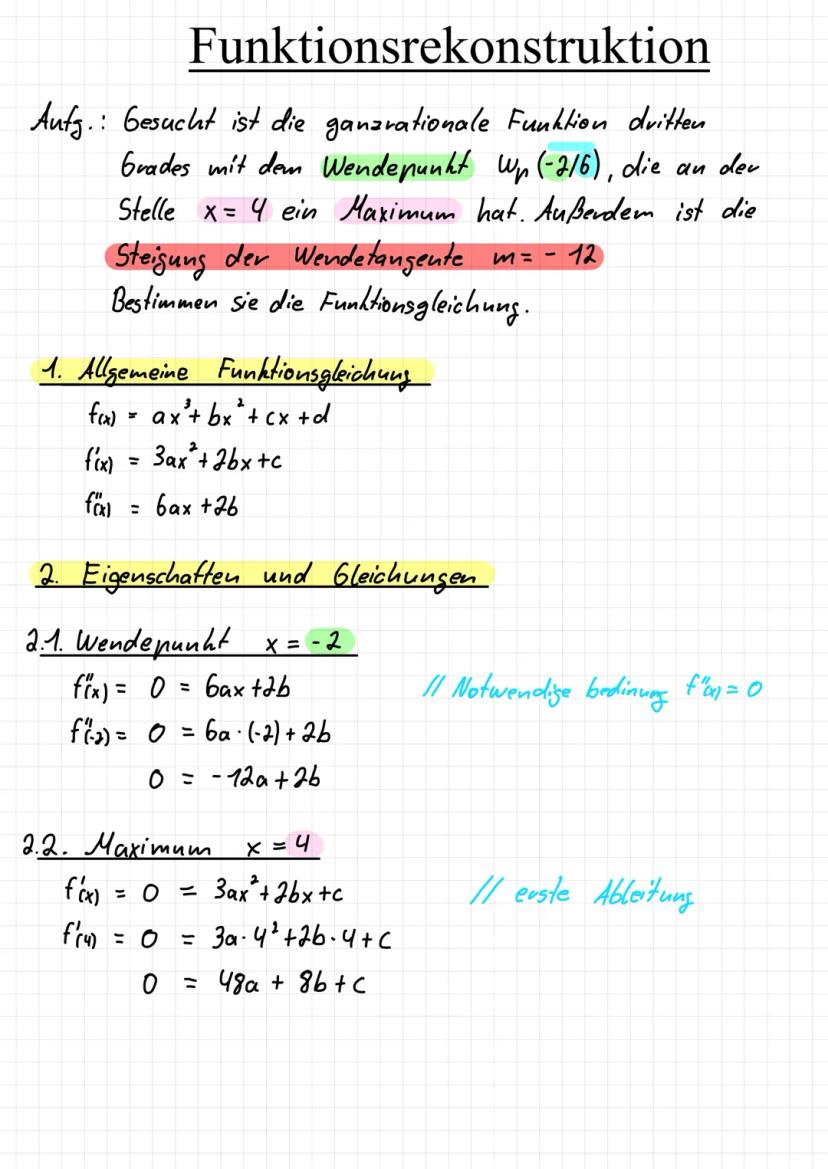 Funktionsrekonstruktion
Aufg.: Gesucht ist die ganzrationale Funktion dritten
Grades mit dem Wendepunkt Wp (-2/6), die an der
Stelle x = 4 ein Maximum hat. Außerdem ist die
Steigung der Wendetangente m = - 12
Bestimmen sie die Funktionsgleichung.
1. Allgemeine Funktionsgleichung
f(x) = ax³ + bx² + cx + d
f'(x) = 3ax² + 2bx + c
f''(x) = 6ax + 2b
2. Eigenschaften und Gleichungen
2.1. Wendepunkt x = -2
f''(x) = 0 = 6ax + 2b // Notwendige bedinung f''(x) = 0
f''(-2) = 0 = 6a · (-2) + 2b
0 = -12a + 2b
2.2. Maximum x = 4
f'(x) = 0 = 3ax² + 2bx + c // erste Ableitung
f'(4) = 0 = 3a · 4² + 2b · 4 + c
0 = 48a + 8b + c